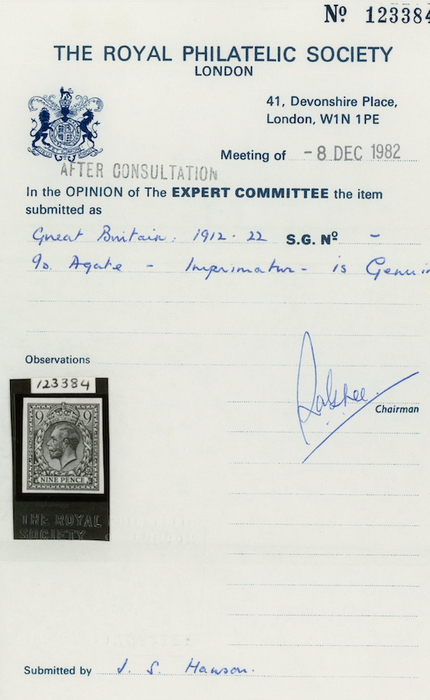 Nº 123384
THE ROYAL PHILATELIC SOCIETY
LONDON
41, Devonshire Place,
London, W1N 1PE
Meeting of -8 DEC 1982
AFTER CONSULTATION
In the OPINION of The EXPERT COMMITTEE the item
submitted as
Great Britain: 1912-22 S.G. Nº -
9d. Agate - Imprimatur - is Genuin
Observations
Chairman
123384
9 9
NINE PENCE
THE ROYAL
SOCIETY
Submitted by J. S. Hawson.